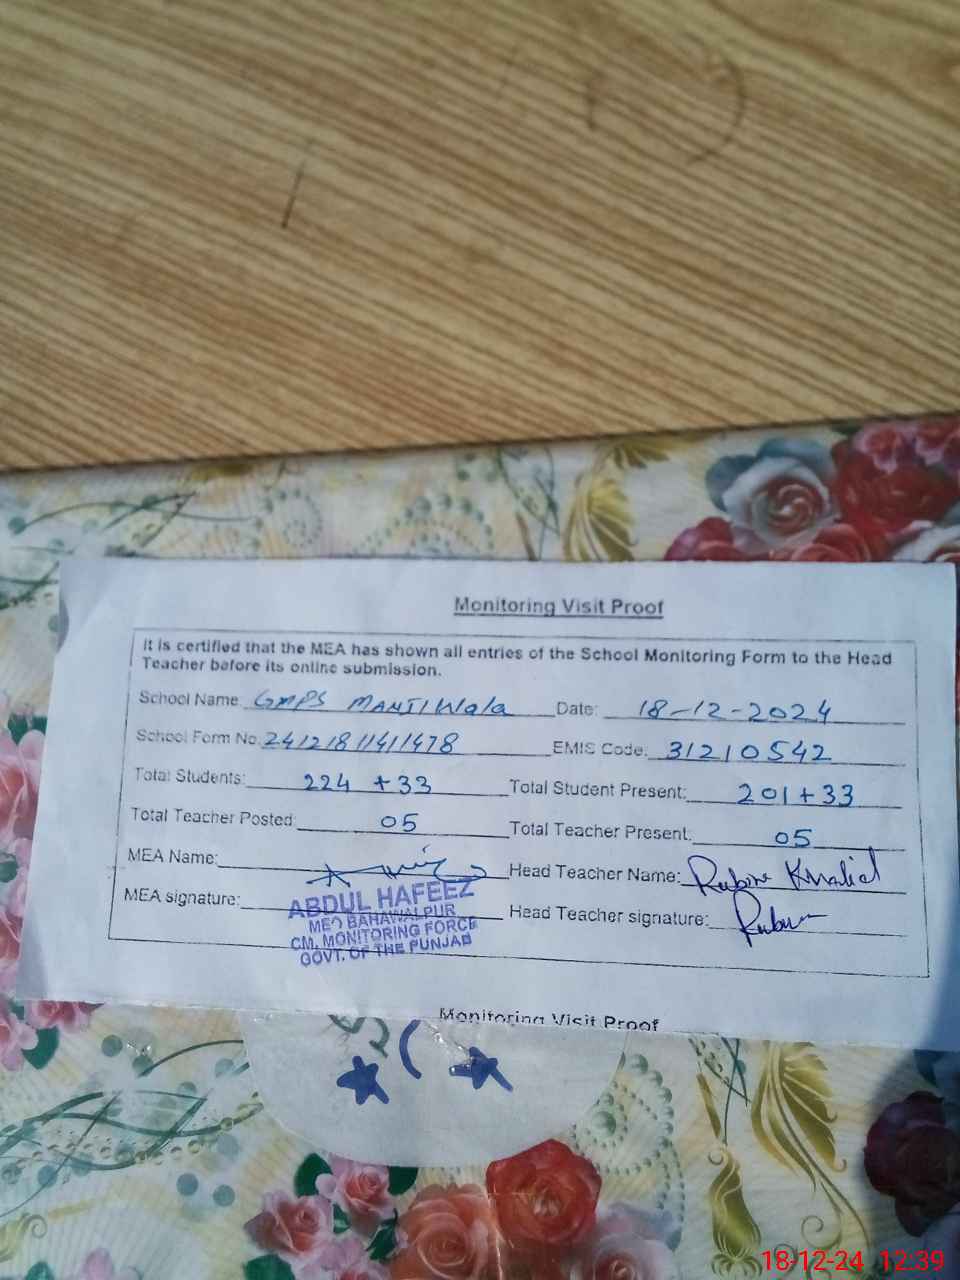 Monitoring Visit Proof
It is certified that the MEA has shown all entries of the School Monitoring Form to the Head
Teacher before its online submission.
School Name: GMPS MANJIWala Date: 18-12-2024
School Form No. 24121811411478 EMIS Code: 31210542
Total Students: 224 +33 Total Student Present: 201+33
Total Teacher Posted: 05 Total Teacher Present: 05
MEA Name: Head Teacher Name: Rubina Khalid
MEA signature: Head Teacher signature:
ABDUL HAFEEZ
MEO BAHAWALPUR
CM. MONITORING FORCE
GOVT. OF THE PUNJAB
Monitoring Visit Proof
18-12-24 12:39